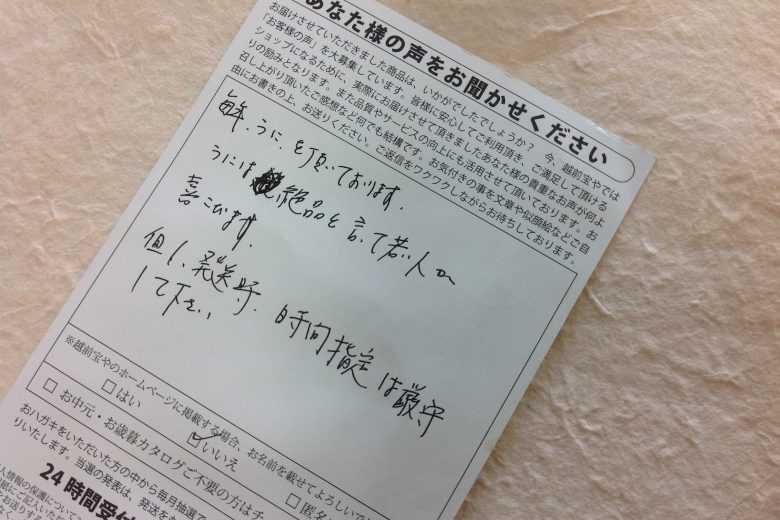 あなた様の声をお聞かせください
お届けさせていただきました商品は、いかがでしたでしょうか? 今、越前宝やでは
「お客様の声」を大募集しています。皆様に安心してご利用頂き、ご満足して頂ける
ショップになるために、実際にお届けさせて頂きましたあなた様の貴重なお声が何よ
りの励みとなります。また品質やサービスの向上にも活用させて頂いております。お
召し上がり頂いたご感想など何でも結構です。お気付きの事を文章や似顔絵などご自
由にお書きの上、お送りください。ご返信をワクワクしながらお待ちしております。
毎年、うに、を頂いております。
うには 絶品と言って若い人が
喜こびます。
但し、発送時、時間指定は厳守
して下さい
※越前宝やのホームページに掲載する場合、お名前を載せてよろしいで
□ はい
☑ いいえ
□ 匿名
□ お中元・お歳暮カタログご不要の方はチ
おハガキをいただいた方の中から毎月抽選で
りいたします。当選の発表は、発送を
24 時間受付
人情報の保護について